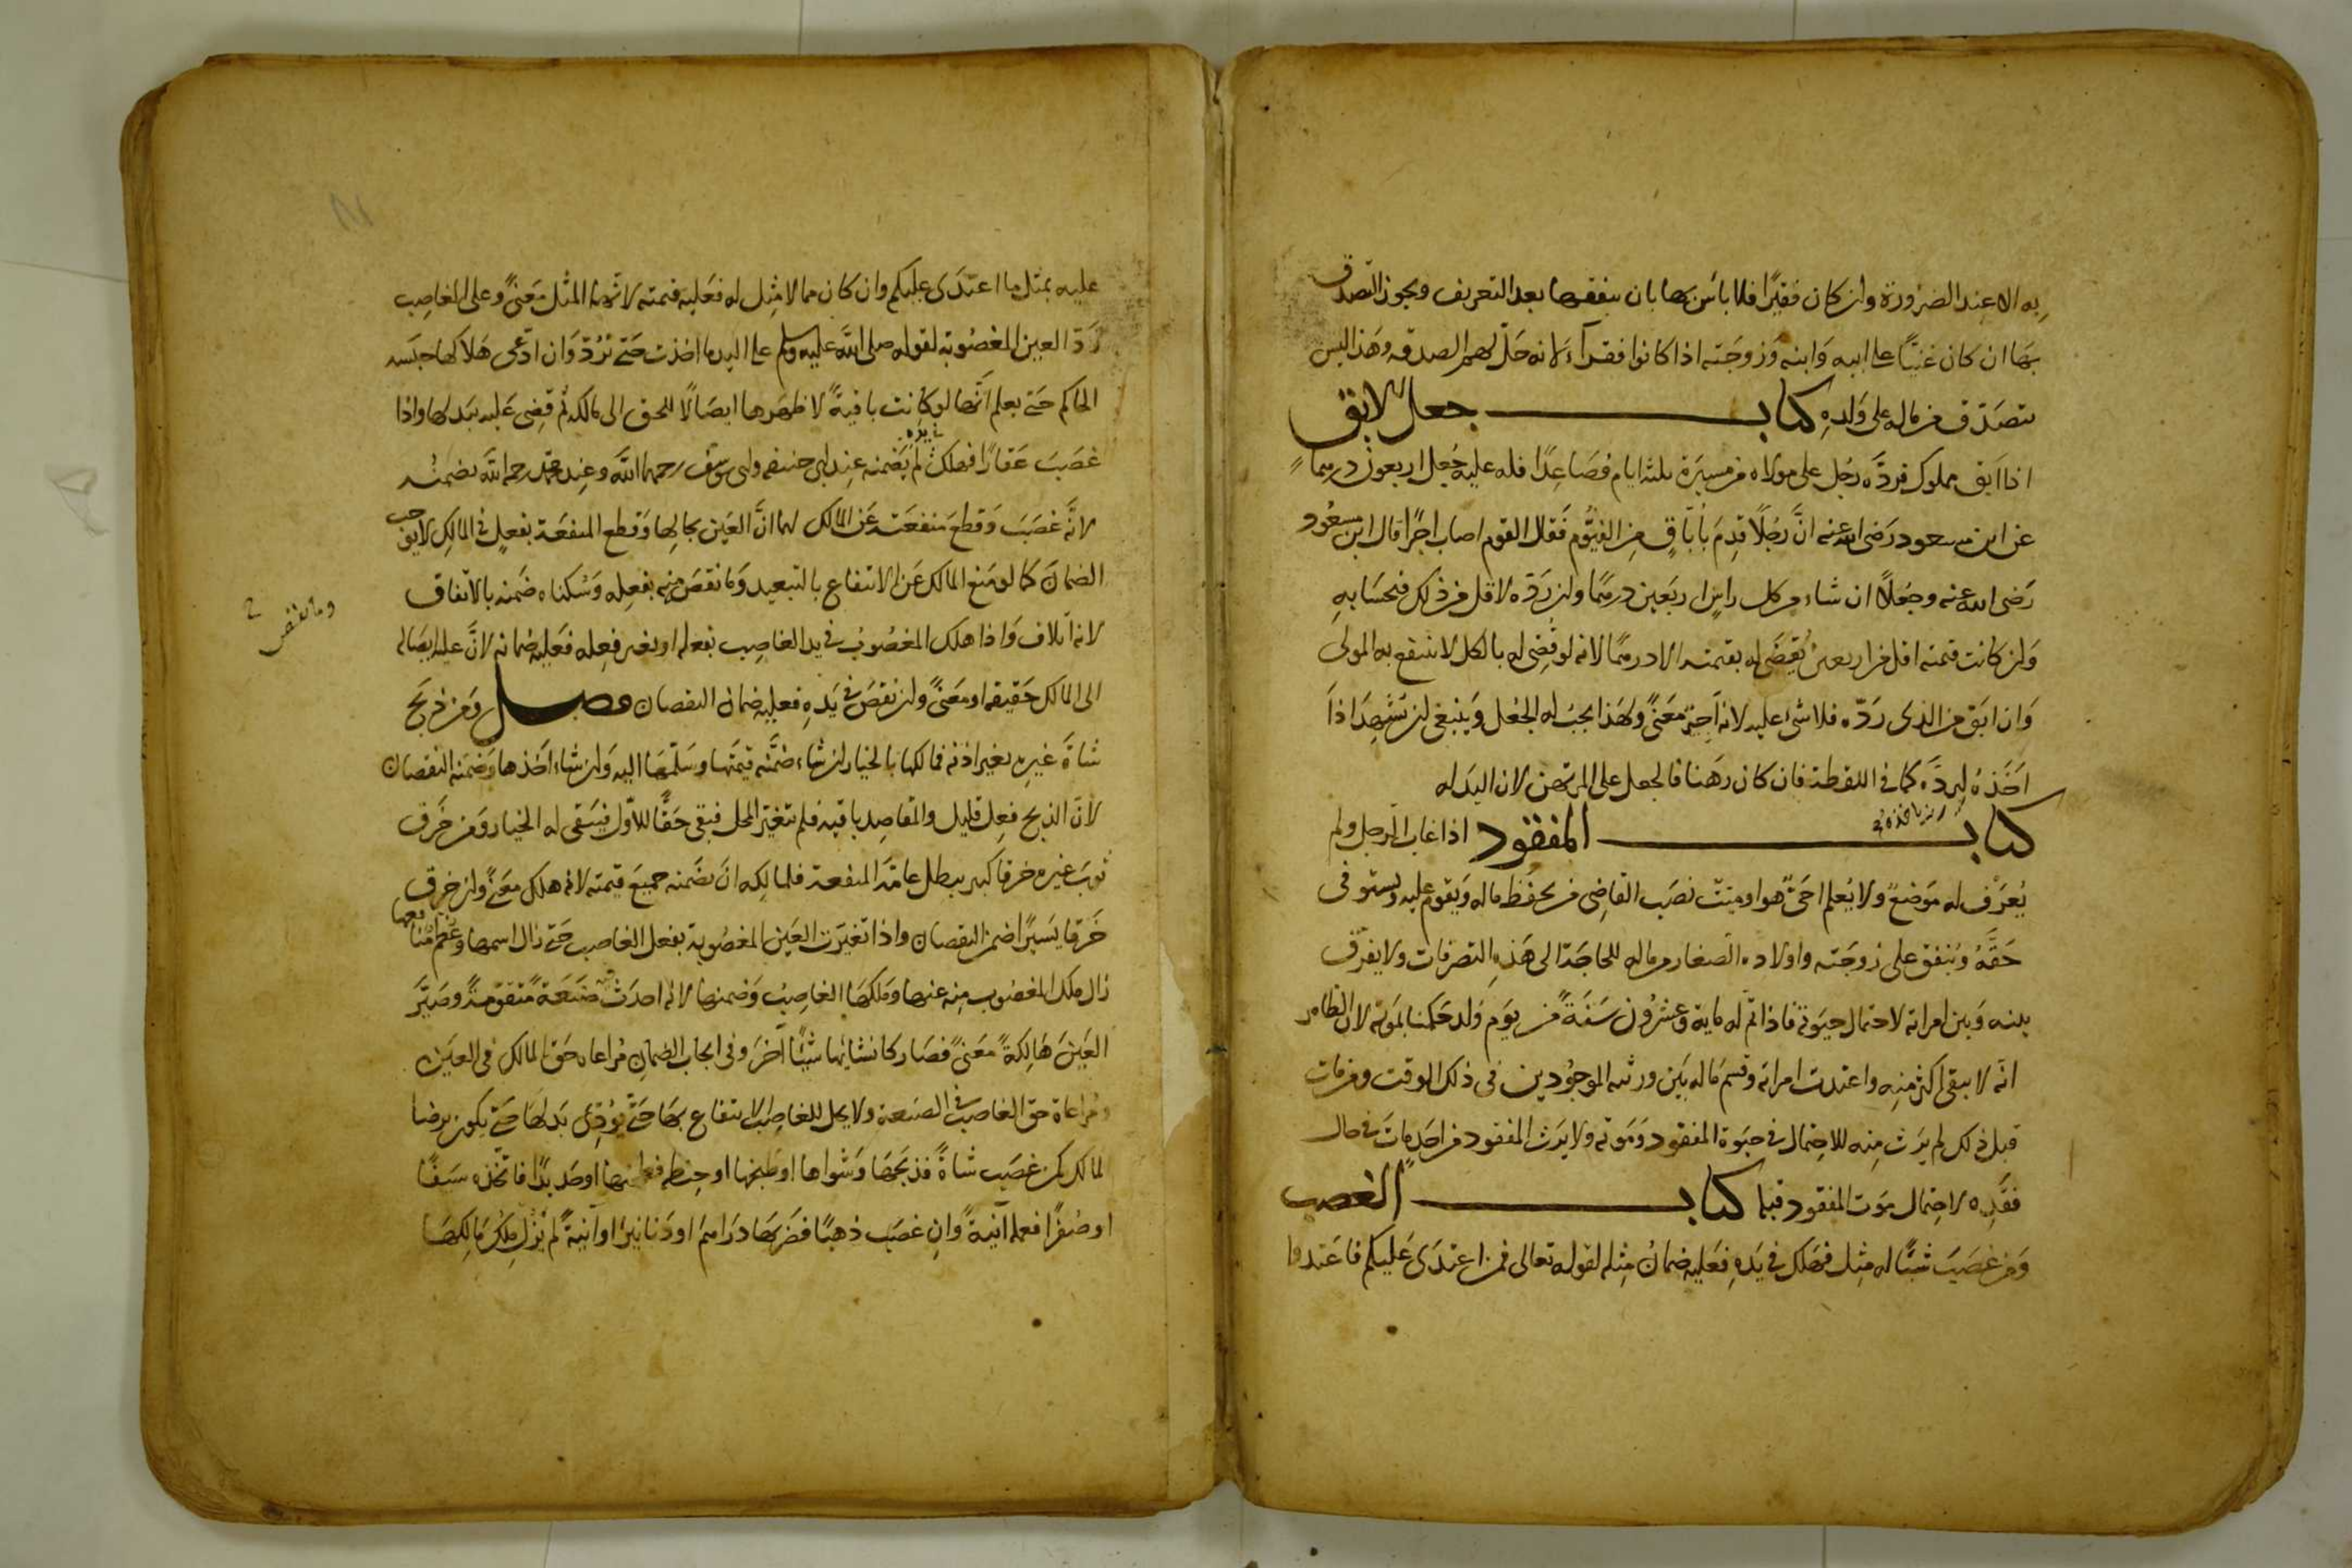 به الا عند الضرورة وان كان فقيرا فلا باس بها بان ينفقها بعد التعريف ويجوز التصدق
بها ان كان غنيًا على ابيه وَابنه وَزوجته اذا كانوا فقرآء لانه حلّ لهم الصدقه وهَذا ليس
بتصدّق من ماله على وَلدهِ كتاب جعل الابق
اذا ابق مملوك فردَّه رجُل على مولاه من مسيرَة ثلثة ايام فصَاعِدًا فله عليه جُعل اربعون درهماً
عن ابن مسعود رَضى الله عنه انَّ رجُلًا قدِمَ باُبّاقٍ من الفيُّوم فقال القوم اصاب اجرًا قال ابن مسعُود
رَضى الله عنه وجعلًا ان شاء من كل راسٍ اربَعين درهمًا وان ردّه لاقل من ذلك فبحسَابه
وَان كانت قيمته اقل من اربعين يُقضَى له بقيمته الا درهمًا لانه لو قضِى له بالكل لا ينتفع به المولى
وَان ابَق من الذى رَدّه فلا شئ عليه لانه اَجير معَنىً ولهذا يجبُ له الجُعل وَينبغى ان يَشهد اذا
اَخَذهُ ليردّه كما فى اللقطة فان كان رهَنا فالجعل على المرتهن لان اليدَ له
كتاب المفقود اذا غاب الرجل ولم
يُعرَف له موَضعٌ ولا يُعلم احَىٌّ هو اوميّت نصَب القاضِى من يحفَظ ماله وَيقوم عليه ويستوفى
حَقَّهُ ويُنفق على زوجَته واولاده الصغار من ماله للحاجَة الى هَذه التصرفات ولا يفرّق
بينه وَبين امراته لاحتمال حيَوته فاذا تمّ له ماية وعشرُون سَنةً من يوَم وُلد حَكمنا بموَته لان الظاهر
انه لا يبقى اكثر منِه واعتدت امراته وقسم مَاله بيَن ورثته الموجُودين فى ذلك الوقت ومن مات
قبل ذلك لم يرَث منِه للاحتِمال فى حيَوة المفقود وَمَوته ولا يرَث المفقود من احَدٍ مات فى حال
فقدِه لاحتِمال موَت المفقود قبله كتاب الغصب
وَمن غصَبَ شيئًا له مِثل فهلك فى يَدهِ فعَليه ضمانُ مِثله لقوله تعالى فمن اعتدَى عَليكم فاعَتدوا
عليه بمثل ما اعتدَى عليكم وان كان مما لا مِثل له فعَليه قيمته لانها المثل مَعنىً وعلى الغاصِب
رَدّ العين المغصُوبَة لقوله صلى الله عليه وسلم على اليد ما اخذت حَتى ترُدّ وَان ادّعى هلاكها حبَسه
الحاكم حَتى يعلم انّها لو كانت باقيَةً لاظهرَها ايصَالًا للحق الى مالكه ثم قضِى عَليه ببَدلها واذا
غصَبَ عَقارًا فهلك فى يده لم يَضمنه عند ابى حنيفه وابى يوسف رحمهما الله وعِند محمّد رحمه الله يضمنُه
لانَّه غصَبَ وَقطعَ منفعَته عَن المالك لهما انَّ العَين بحالها وَقطع المنفعَة بفعلٍ فى المالك لا يوجب
الضمان كما لو مَنع المالك عَن الانتفاع بالتبعيد وَما نقصَ منِه بفعِله وَسُكناه ضَمنه بالاتفاق
لانه اتلاف وَاذا هلك المغصُوبُ فى يد الغاصِب بفعله او بغير فعِله فعَليه ضمانه لانَّ عليه ايصَاله
الى المالك حَقيقه او معَنىً وان نقصَ فى يَدهِ فعليه ضمان النقصان فصل وَمن ذبَح
شاةَ غيرِه بغير اذنه فمالكها بالخيار ان شاء ضمَّنه قيمَتها وسَلّمهَا اليه وَان شاء اخَذها وَضمّنه النقصان
لانّ الذبح فعِل قليل والمقاصِد باقيه فلم تتغيّر المحل فبقى حَقًّا للاوّل فيبَقى له الخيار وَمن خَرق
ثوبَ غيره خرقا كبير يبطل عامّة المنفعة فلمالكِه ان يضَمنه جميعَ قيمته لانه هلك معَنىً وان خرق
خَرقا يسَيرًا ضمن النقصان واذا تغيّرت العَين المغصُوبة بفعل الغاصب حَتى زال اسمها وعُظم منافعها
زال ملك المغصُوب مِنه عنها وَملكهَا الغاصِبُ وَضمنها لانه احدَث صَنعَةً متقوّمةً وصَيَّر
العَينَ هَالكةً معَنىً فصَار كانشائها شَيئًا آخَر وَفى ايجاب الضمانِ مُراعاه حَق المالك فى العَين
ومُراعاة حق الغاصب فى الصنعة ولا يحل للغاصِب الانتفاع بهَا حَتّى يؤدِّى بَدلهَا حَتى يكون برضا
المالك كمن غصَب شاةً فذبَحهَا وَشواها او طبخها او حِنطه فطحنها او حَديدًا فاتّخذه سَيفًا
او صُفرًا فعمله آنيةً وانِ غصَبَ ذهبًا فضَربهَا درَاهمَ او دَنانيَرا او آنيةً لم يَزُل مِلكُ مَالكِهَا
وما نقص